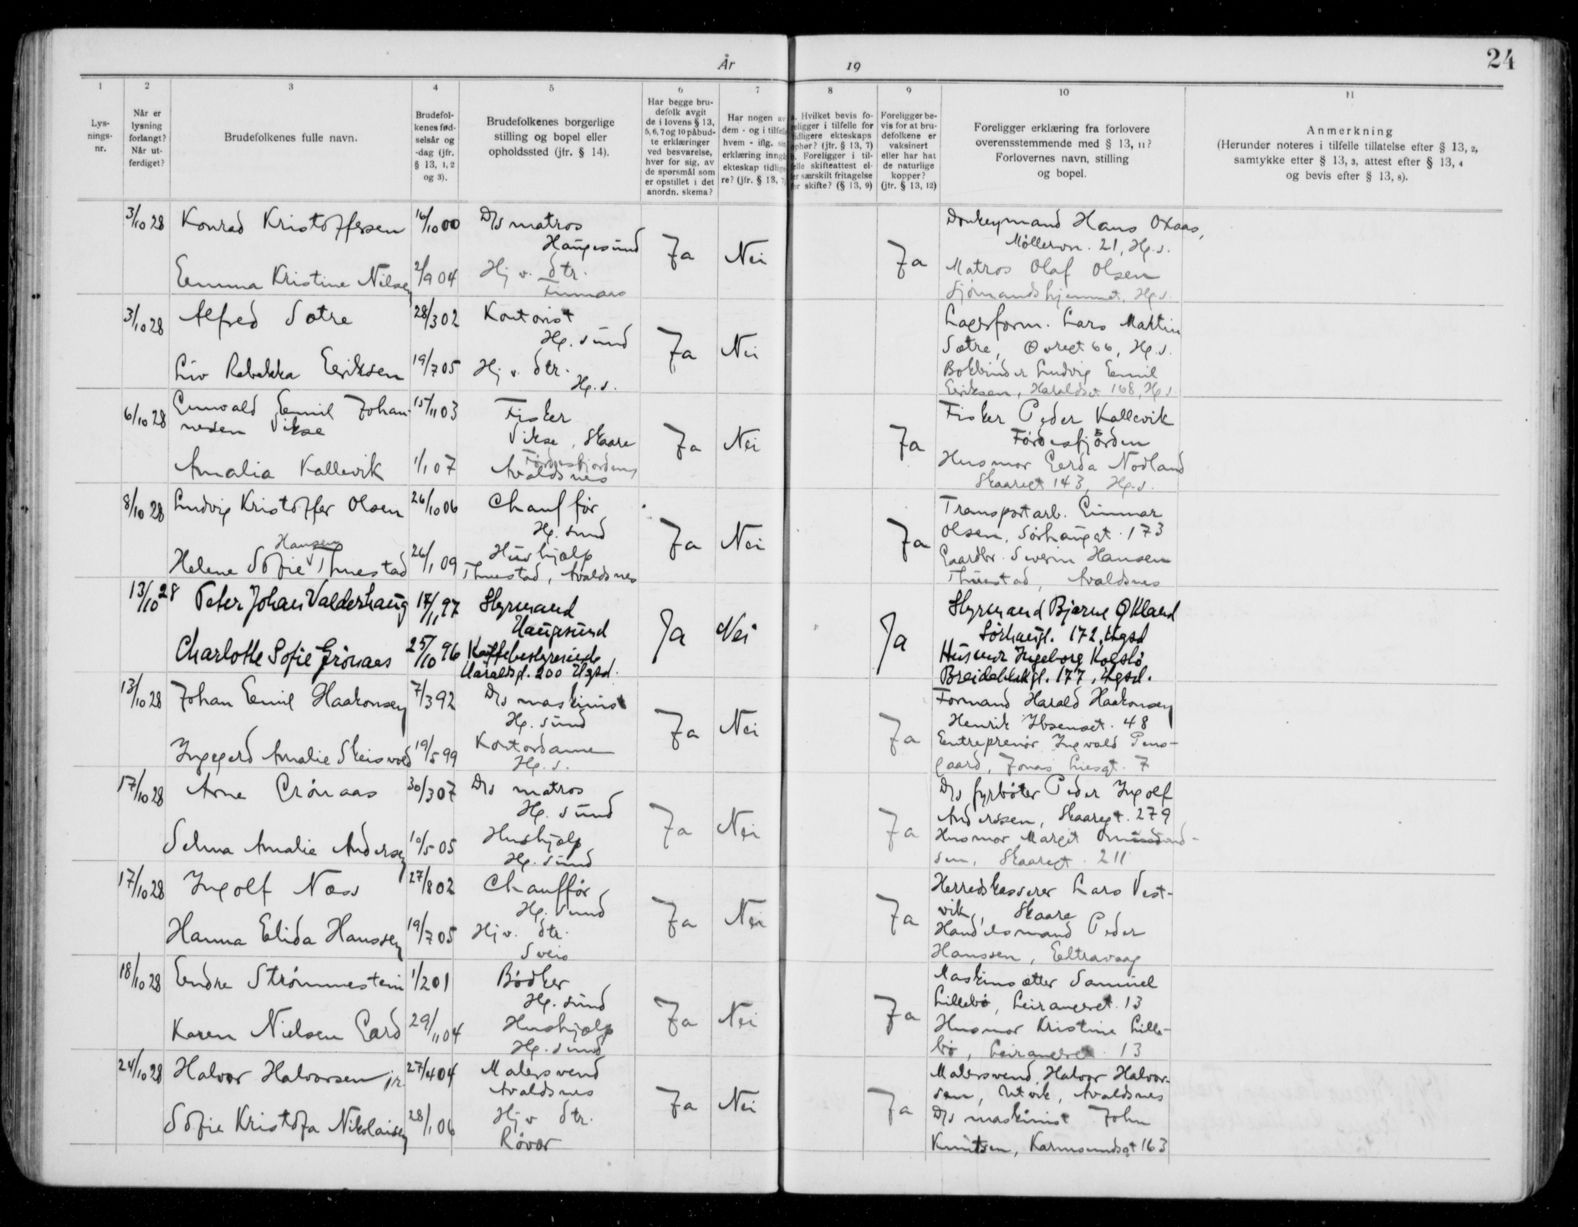 24
År 19
1 2 3 4 5 6 7 8 9 10 11
Lys-
nings-
nr.
Når er
lysning
forlangt?
Når ut-
ferdiget?
Brudefolkenes fulle navn.
Brudefol-
kenes fød-
selsår og
-dag (jfr.
§ 13, 1, 2
og 3).
Brudefolkenes borgerlige
stilling og bopel eller
opholdssted (jfr. § 14).
Har begge bru-
defolk avgit
de i lovens § 13,
5, 6, 7 og 10 påbud-
te erklæringer
ved besvarelse,
hver for sig, av
de spørsmål som
er opstillet i det
anordn. skema?
Har nogen av
dem - og i tilfelle
hvem - iflg.
erklæring inngå
ekteskap tidlig
re? (jfr. § 13, 7
Hvilket bevis fo-
religger i tilfelle for
tidligere ekteskaps
ophør? (jfr. § 13, 7)
Foreligger i til-
felle skifteattest el-
er særskilt fritagelse
for skifte? (§ 13, 9)
Foreligger be-
vis for at bru-
defolkene er
vaksinert
eller har hat
de naturlige
kopper?
(jfr. § 13, 12)
Foreligger erklæring fra forlovere
overensstemmende med § 13, 11?
Forlovernes navn, stilling
og bopel.
Anmerkning
(Herunder noteres i tilfelle tillatelse efter § 13, 2,
samtykke efter § 13, 3, attest efter § 13, 4
og bevis efter § 13, 8).
3/10 28 Konrad Kristoffersen 16/10 00 D/s matros
Haugesund
Ja Nei Ja
Emma Kristine Nilsen 2/9 04 Hj v. dtr.
Donkeymand Hans Oxaas,
Møllervn. 21, Hg.s.
Matros Olaf Olsen
Sjømandshjemmet, Hg.s.
3/10 28 Alfred Sætre 28/3 02 Kontorist
Hg.sund
Ja Nei
Liv Rebekka Eriksen 19/7 05 Hj v. dtr.
Hg.s.
Lagerform. Lars Martin
Sætre, Øvregt 66, Hg.s.
Bokbinder Ludvig Emil
Eriksen, Haraldsgt 168, Hg.s
6/10 28 Gunvald Emil Johan-
nesen Vikse 15/11 03 Fisker
Vikse, Skaare
Ja Nei Ja
Amalia Kallevik 1/1 07 Førdesfjorden,
Avaldsnes
Fisker Peder Kallevik
Førdesfjorden
Husmor Gerda Nodland
Skaaregt 143, Hg.s.
8/10 28 Ludvig Kristoffer Olsen 26/10 06 Chauffør
Hg.sund
Ja Nei Ja
Helene Sofie Hansen Thuestad 26/1 09 Hushjælp
Thuestad, Avaldsnes
Transportarb. Gunnar
Olsen, Sørhaugt. 173
Gaardbr. Severin Hansen
Thuestad, Avaldsnes
13/10 28 Peter Johan Valderhaug 14/11 97 Styrmand
Haugesund
Ja Nei Ja
Charlotte Sofie Grønaas 25/10 96 Kaffebestyrerinde
Haraldsgt. 200 Hgsd.
Styrmand Bjarne Økland
Sørhaugt. 172, Hgsd
Husmor Ingeborg Kolstø,
Breidablikgt. 177, Hgsd.
13/10 28 Johan Emil Haakonsen 7/3 92 D/s maskinist
Hg.sund
Ja Nei Ja
Ingegerd Amalie Skeisvold 19/5 99 Kontordame
Hg.s.
Formand Harald Haakonsen
Henrik Ibsensgt. 48
Entreprenør Ingvald Pens-
gaard, Jonas Liesgt. 7
17/10 28 Arne Grønaas 30/3 07 D/s matros
Hg.sund
Ja Nei Ja
Selma Amalie Andersen 10/5 05 Hushjælp
Hg.sund
D/s fyrbøter Peder Ingolf
Anderssen, Skaaregt. 279
Husmor Margit
sen, Skaaregt. 211
17/10 28 Ingolf Næss 27/8 02 Chauffør
Hg.sund
Ja Nei Ja
Hanna Elida Hanssen 19/7 05 Hj v. dtr.
Sveio
Herredskasserer Lars Vest-
vik, Skaare
Handelsmand Peder
Hanssen, Eltravaag
18/10 28 Endre Strømmestein 1/2 01 Bødker
Hg.sund
Ja Nei Ja
Karen Nielsen Gard 29/11 04 Hushjælp
Hg.sund
Maskinsætter Samuel
Lillebø, Leirangeret. 13
Husmor Kristine Lille-
bø, Leirangeret. 13
24/10 28 Halvor Halvorsen jr. 27/4 04 Malersvend
Avaldsnes
Ja Nei Ja
Sofie Kristofa Nikolaisen 28/1 06 Hj v dtr.
Røvær
Malersvend Halvor Halvor-
sen, Utvik, Avaldsnes
D/s maskinist John
Knutsen, Karmsundsgt 163